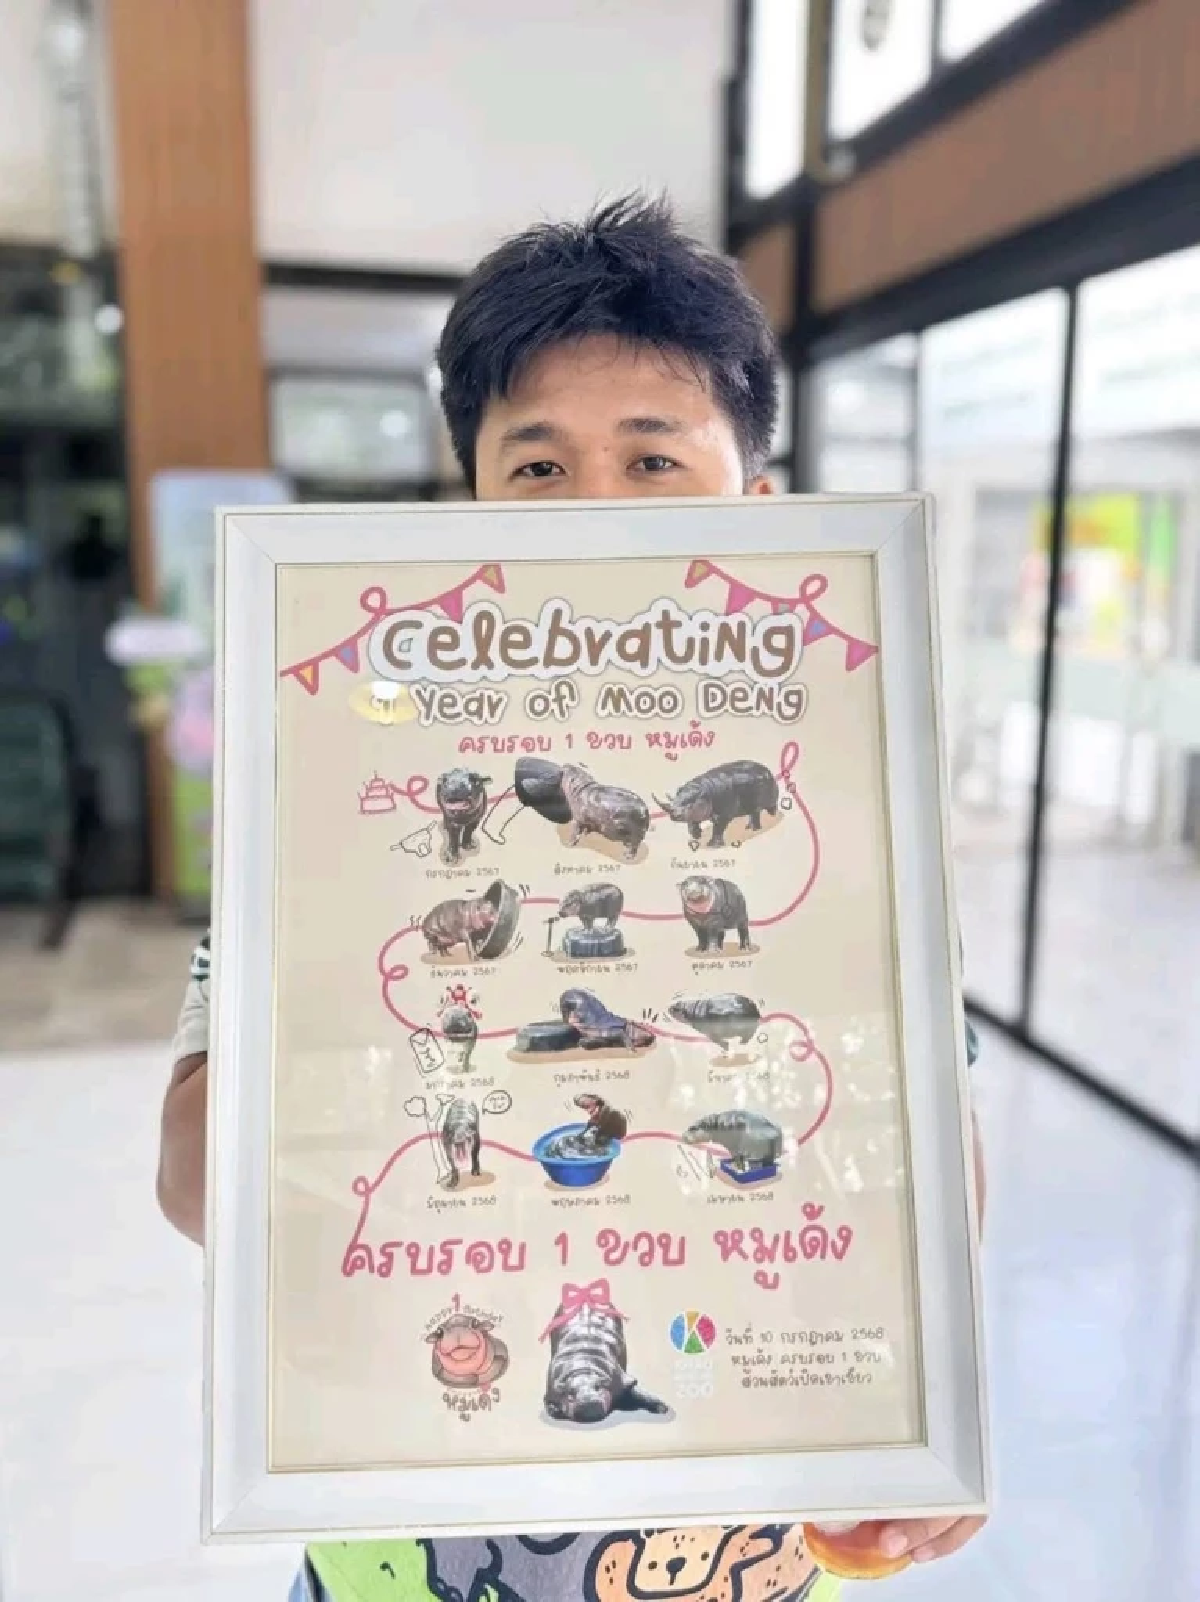 Celebrating
1 Year of Moo Deng
ครบรอบ 1 ขวบ หมูเด้ง
กรกฎาคม 2567
สิงหาคม 2567
กันยายน 2567
ธันวาคม 2567
พฤศจิกายน 2567
ตุลาคม 2567
มกราคม 2568
กุมภาพันธ์ 2568
มีนาคม 2568
มิถุนายน 2568
พฤษภาคม 2568
เมษายน 2568
ครบรอบ 1 ขวบ หมูเด้ง
หมูเด้ง
ZOO
วันที่ 10 กรกฎาคม 2568
หมูเด้ง ครบรอบ 1 ขวบ
สวนสัตว์เปิดเขาเขียว